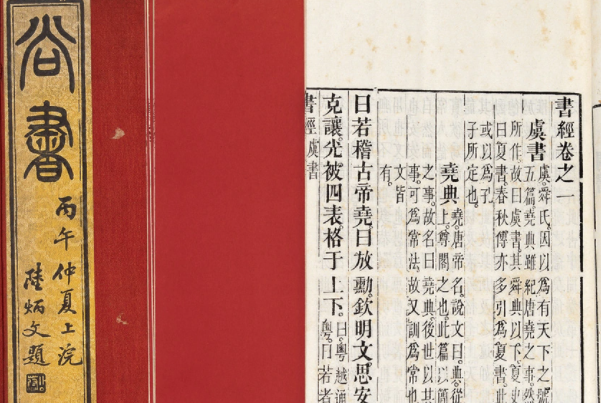 尚書
丙午仲夏上浣
陸炳文題
書經卷之一
虞書
虞。舜氏。因以爲有天下之號
五篇。堯典雖紀唐堯之事。然
所作。故曰虞書。其舜典以下。夏史
曰夏書。春秋傳亦多引爲夏書。此
或以爲孔
子所定也。
堯典
堯。唐帝名。說文曰。典。從
上。尊閣之也。此篇以簡
之事。故名曰堯典。後世以其
事。可爲常法。故又訓爲常也
文皆
有。
曰若稽古帝堯。曰放勳。欽明文思安
克讓。光被四表。格于上下。
曰。粵越通
粵。曰若者
書經 虞書